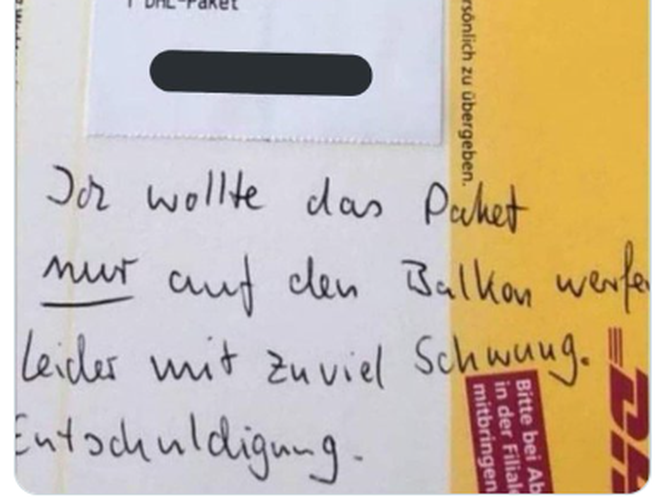 1 DHL-Paket
rsönlich zu übergeben.
Ich wollte das Paket
nur auf den Balkon werfe
Leider mit zuviel Schwung.
Entschuldigung.
Bitte bei Ab
in der Filial
mitbringen